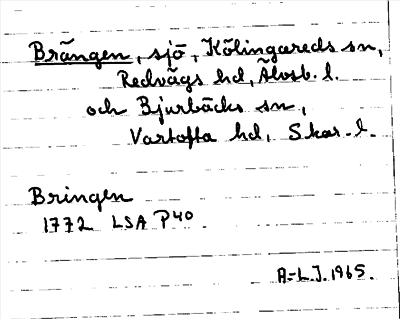 Brängen, sjö, Kölingareds sn,
Redvägs hd, Älvsb. l.
och Bjurbäcks sn,
Vartofta hd, Skar. l.
Bringen
1772 LSA P40
A-L.J. 1965.